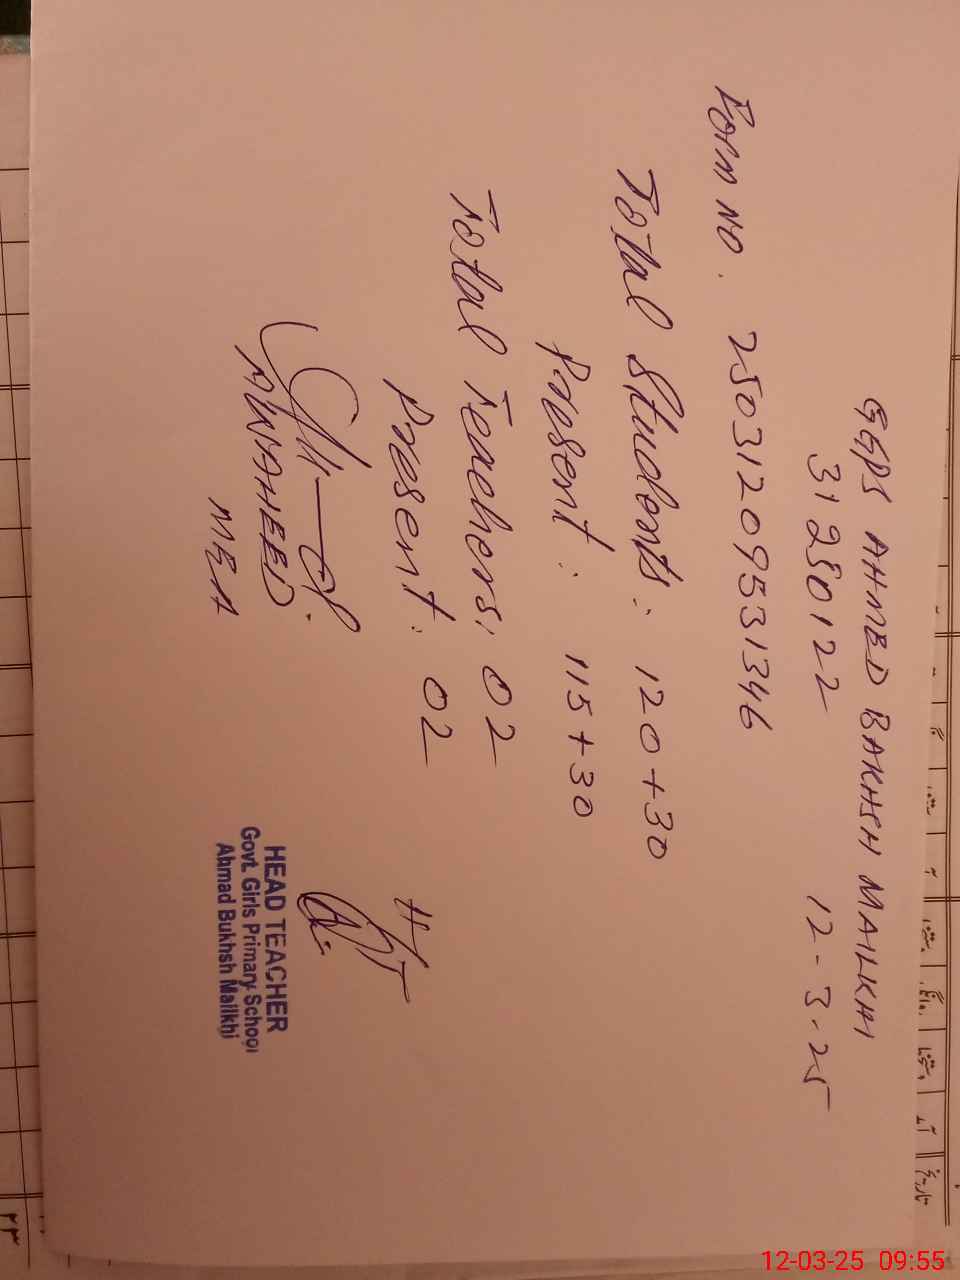 GGPS AHMED BAKHSH MAILKHI
31280122
12-3-25
Form No. 2503120953 1346
Total Students: 120+30
Present: 115+30
Total Teachers: 02
Present: 02
HT
AWAHEED
MEA
HEAD TEACHER
Govt. Girls Primary School
Ahmad Bukhsh Mailkhi
12-03-25 09:55